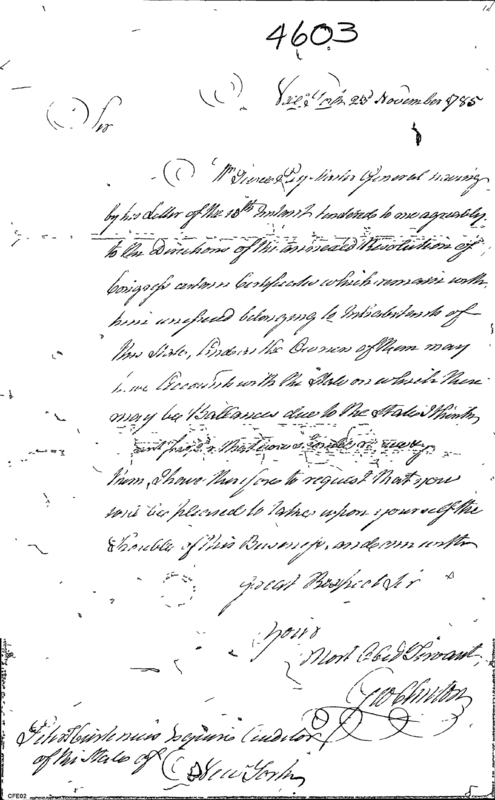 4603
New York 23d November 1785
Sir
Mr Pierce Pay Master General having
by his Letter of the 18th Instant tendered to me agreeably
to the Directions of the annexed Resolution of
Congress certain Certificates which remain with
him unissued belonging to Inhabitants of
this State, & as the Owners of them may
have Accounts with the State on which there
may be Ballances due to the State I think
him, I have therefore to request that you
will be pleased to take upon yourself the
Trouble of this Business, and am with
great Respect Sir
Your
Most Obed Servant
Geo Clinton
Peter T Curtenius Esquire Auditor
of the State of
New York
CFE02